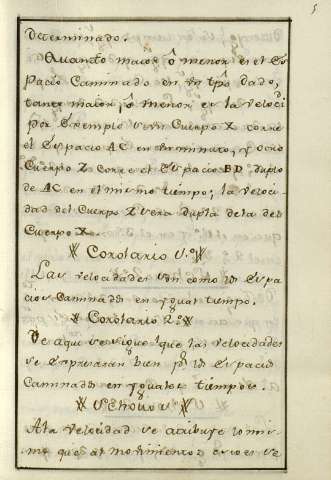 5
determinado.
Quanto maior, ô menor es el Es
pacio Caminado en un tpô dado,
tanto maior, ô menor es la velocid
por Exemplo si un Cuerpo X corre
el Espacio AC en un minuto, y otro
Cuerpo Z Corre el Espacio BD duplo
de AC en el mismo tiempo; la veloci-
dad del Cuerpo Z sera dupla de la del
Cuerpo X.
Corolario 1.º
Las velocidades son como los Espa
cios Caminados en ygual tiempo.
Corolario 2.º
De aqui se sigue que las velocidades
se Expresaran bien pr los Espacios
Caminados en yguales tiempos.
Scholio
A la velocidad se atribuye lo mis
mo que al movimiento esto es se